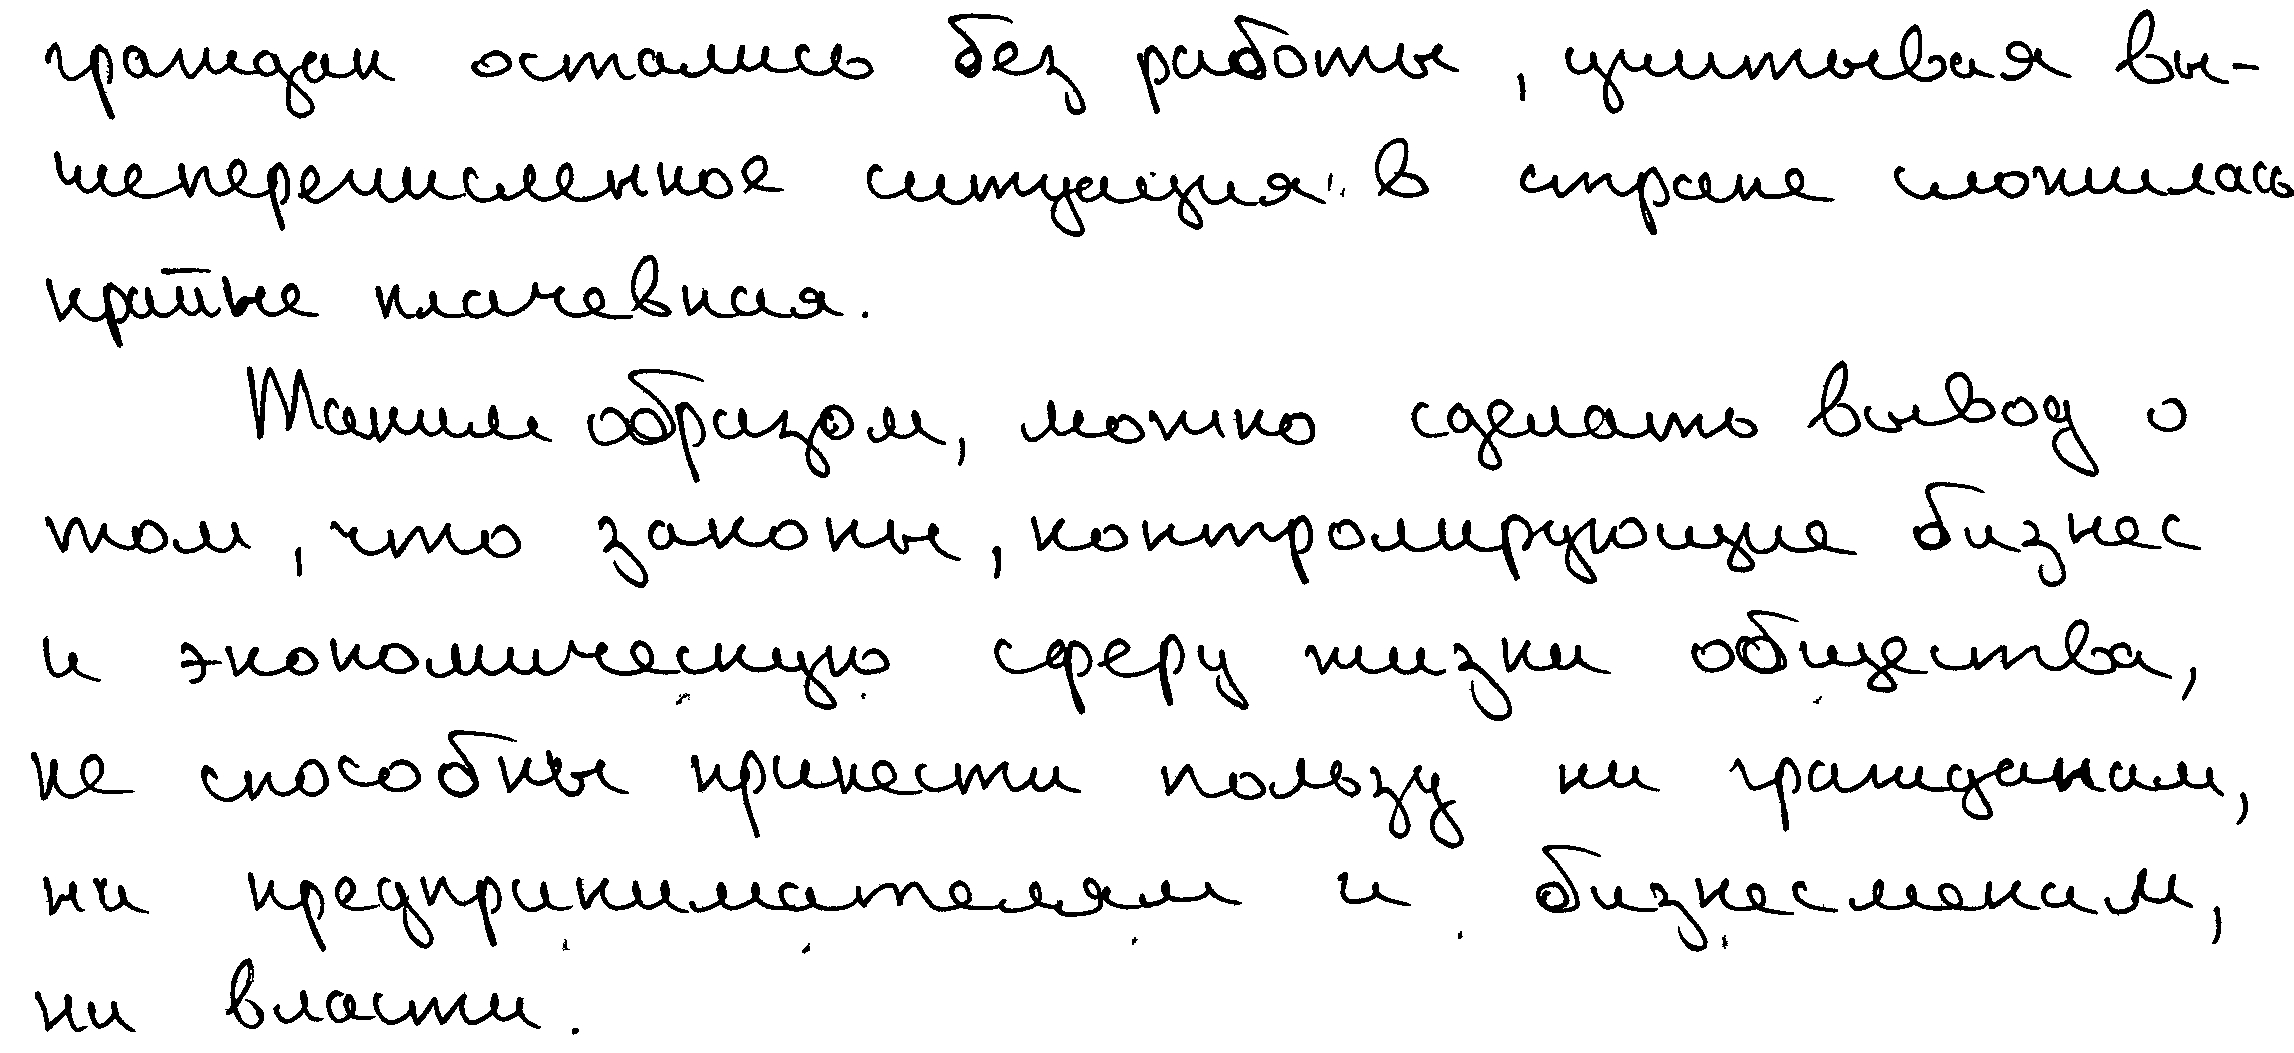 граждан остались без работы, учитывая вы-
шеперечисленное ситуация в стране сложилась
крайне плачевная.
Таким образом, можно сделать вывод о
том, что законы, контролирующие бизнес
и экономическую сферу жизни общества,
не способны принести пользу ни гражданам,
ни предпринимателям и бизнесменам,
ни власти.